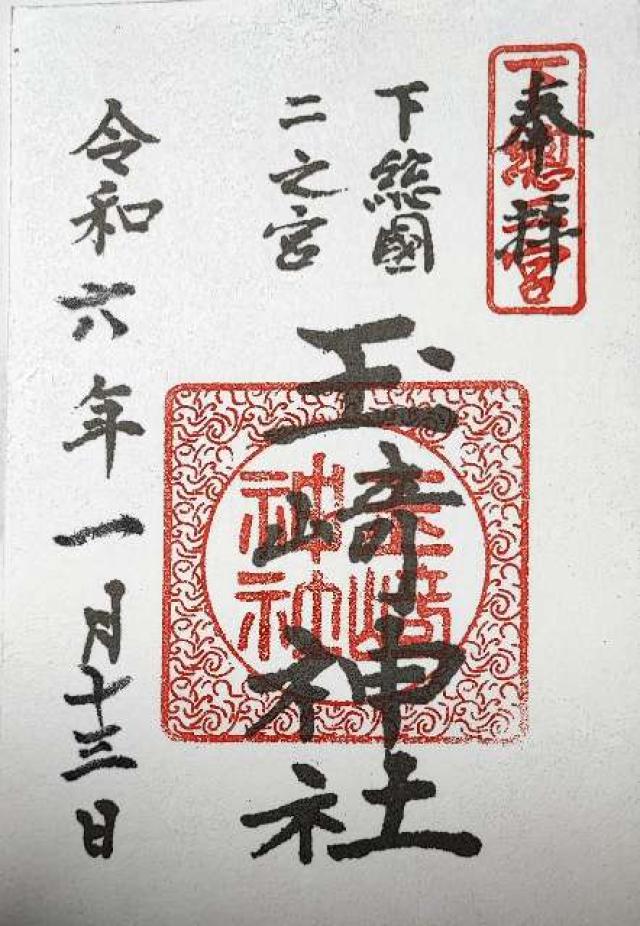 奉拝
下総二宮
下総國
二之宮
玉﨑神社
玉﨑
神社
令和六年一月十三日